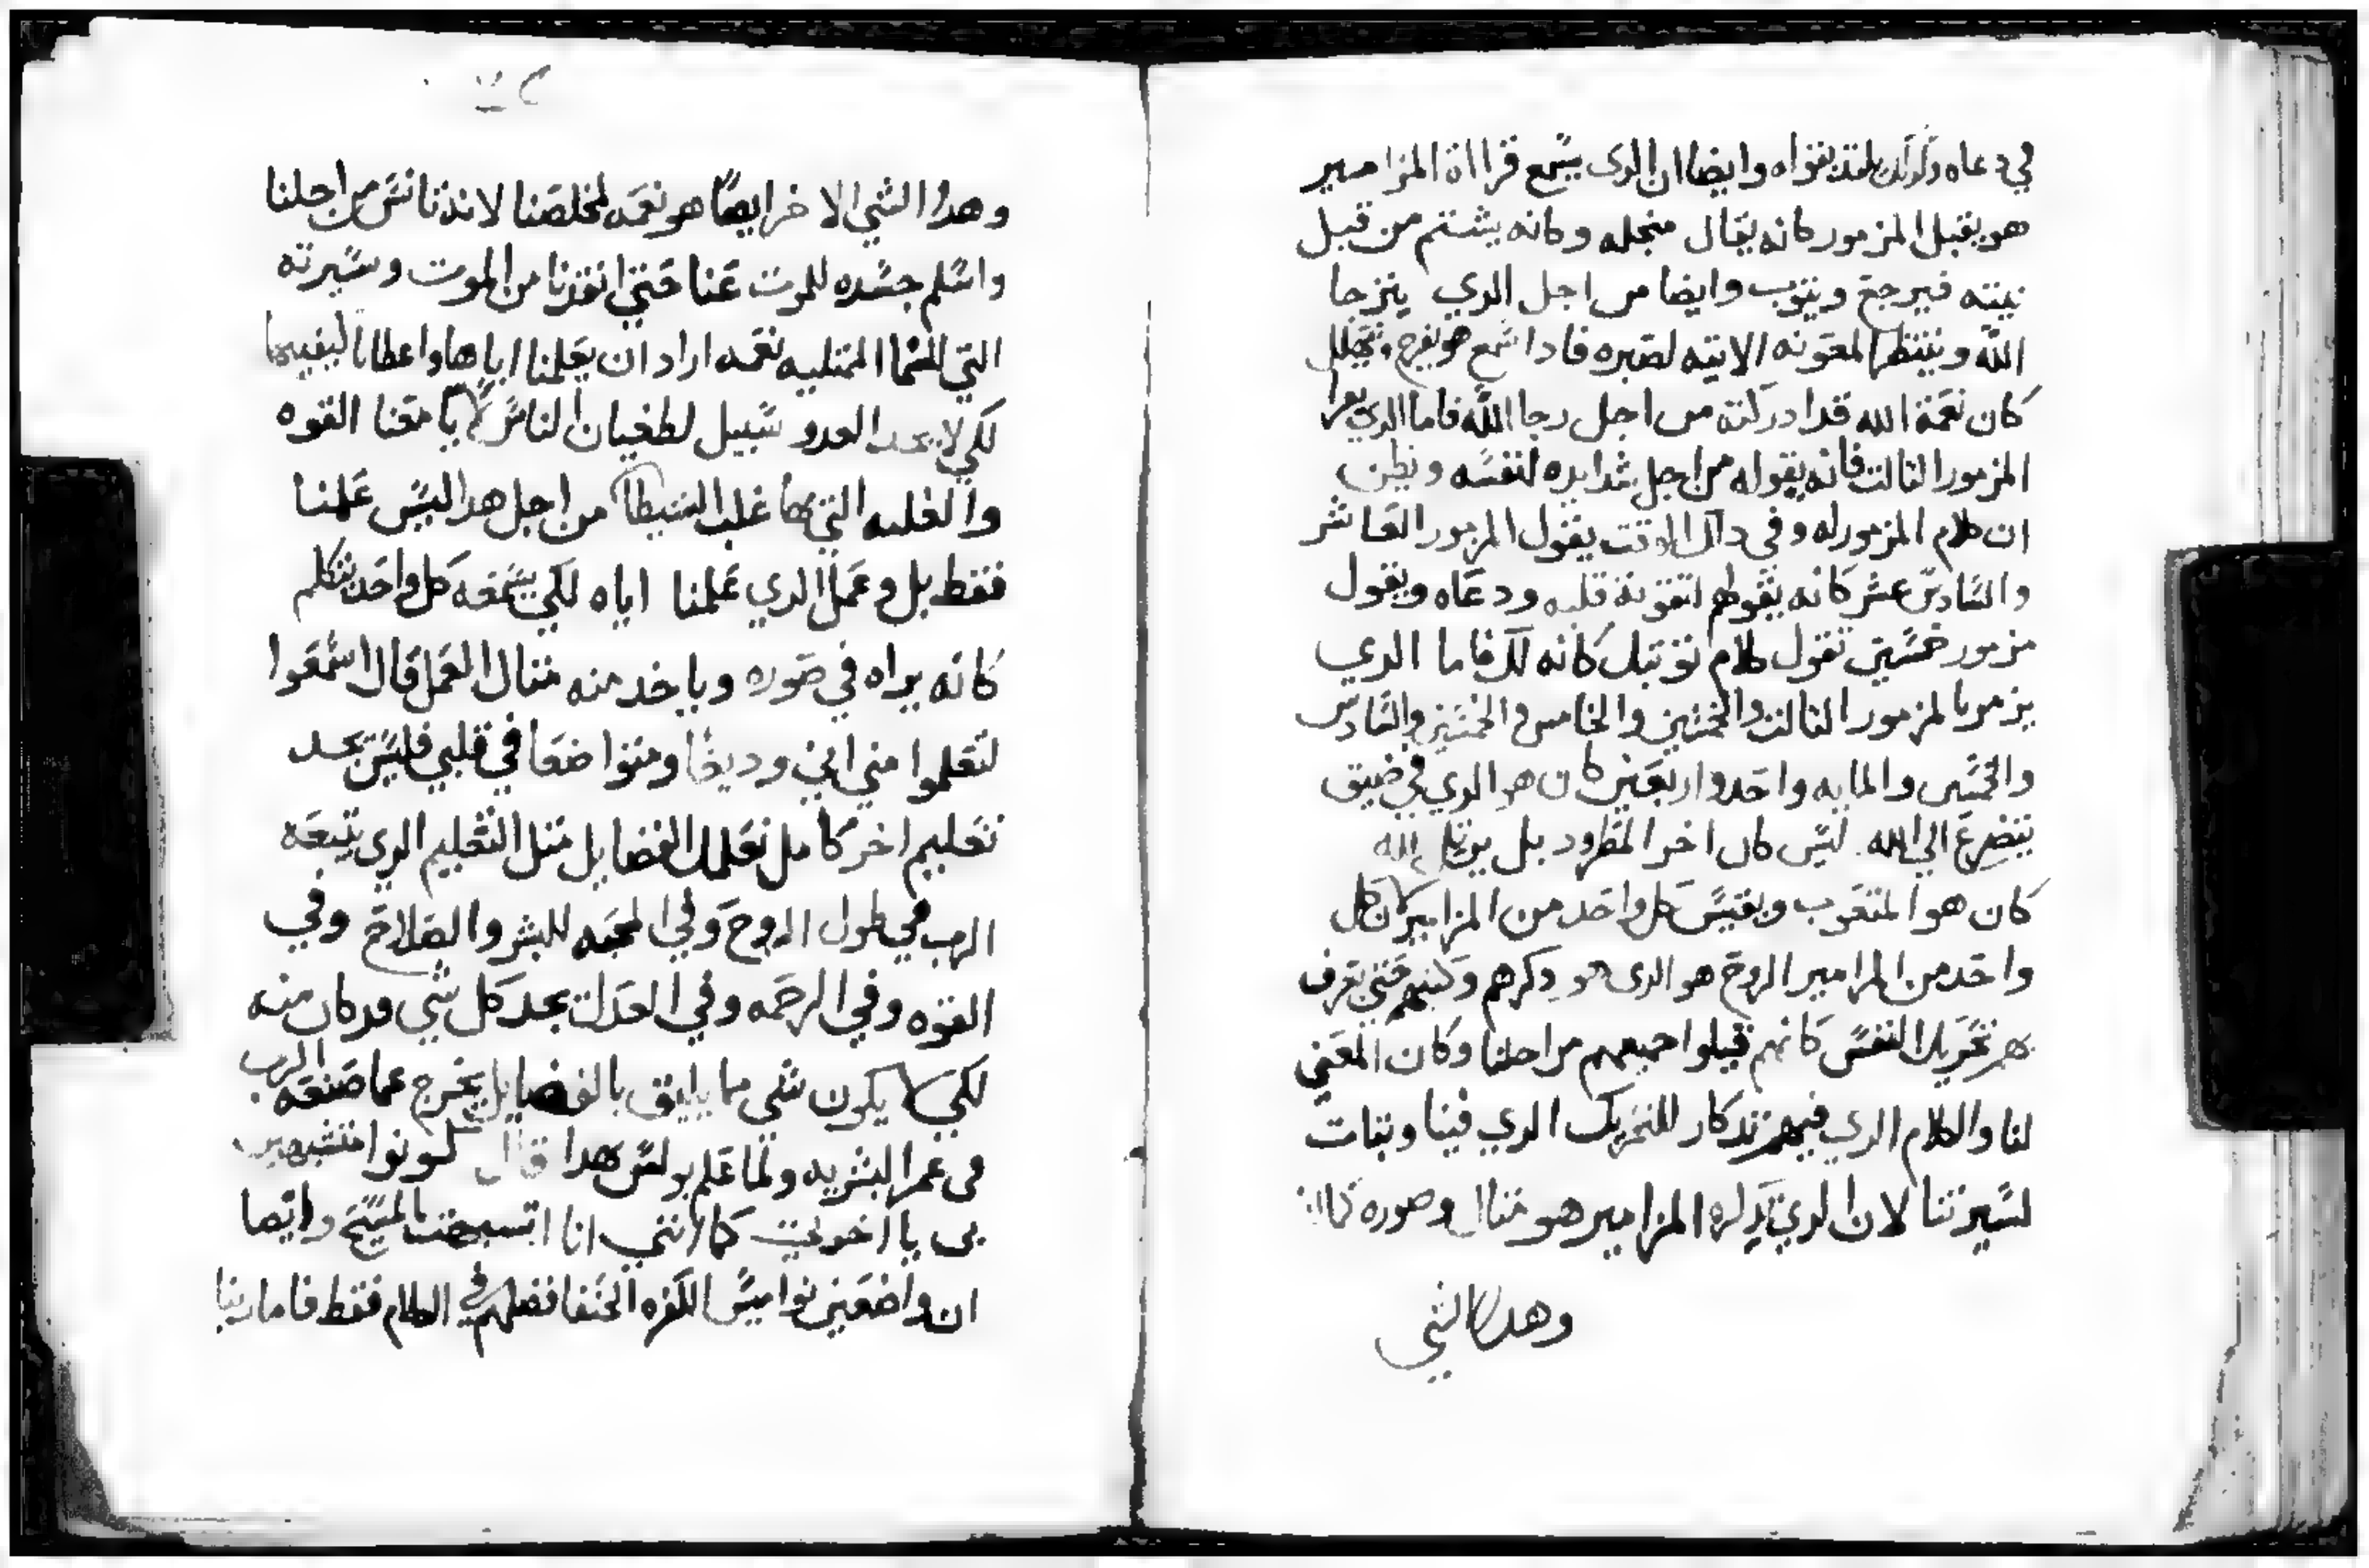 في دعاه وكذلك بلفظ يقواه وايضا ان الدى يسمع قرااة المزامير
هو يقبل المزمور كانه يقال منجله وكانه يشتم من قبل
نيته فيرجع ويتوب وايضا من اجل الدي يترجا
الله وينتظر المعونه الاتيه لصبره فادا سمع هو يفرح ويتهلل
كان نعمة الله قد ادركته من اجل رجا الله فاما الدي يقرا
المزمور التالت فانه يقوله من اجل شدايده لنفسه ويظن
ان كلام المزمور له وفي داك الوقت يقول المزمور العاشر
والسادس عشر كانه يقولهم لتقوية قلبه ودعاه ويقول
مزمور خمسين تقول كلام توبتك كانه لك فاما الدي
يزمر بالمزمور التالت والخمسين والخامس والخمسين والسادس
والخمسين والمايه واحد واربعين كان هو الدي في ضيق
يتضرع الي الله ليس كان اخر المطرود بل يرتل لله
كان هو المتعوب ويقيس كل واحد من المزامير لان كل
واحد من المزامير الروح هو الدى هو دكرهم وكتبهم حتي تعرف
بهم تحريك النفس كانهم قيلوا جميعهم من اجلنا وكان المعني
لنا والكلام الدي فيهم تدكار للتحريك الدي فينا وتبات
لسيرتنا لان الدي تدكره المزامير هو متال وصوره كمالنا
وهدا الشي
وهدا الشي الاخر ايضا هو نعمه لمخلصنا لانه تانس من اجلنا
واسلم جسده للموت عنا حتي انقدنا من الموت وسيرته
التي للسما الممتليه نعمه اراد ان يعلمنا اياها واعطانا ليقيهما
لكي لا يجد العدو سبيل لطغيان الناس معنا القوه
والغلبه التي بها غلب الشيطان من اجل هدا ليس علمنا
فقط بل وعمل الدي علمنا اياه لكي يسمعه كل واحد يتكلم
كانه يراه في صوره وياخد منه متال العمل قال اسمعوا
لتعلموا مني اني وديعا ومتواضعا في قلبي فليس تجد
تعليم اخر كامل تعلمك الفضايل متل التعليم الدي يتبعه
الرب في طول الروح وفي المحبه للبشر والصلاح وفي
القوه وفي الرحمه وفي العدل تجد كل شي قد كان منه
لكي لا يكون شي مما يليق بالفضايل يخرج عما صنعه الرب
في عمر البشريه ولما علم بولس بهدا قال كونوا متشبهين
بي يا اخوتي كما انني انا اتشبهت بالمسيح وايضا
ان واضعين نواميس الكفره الحنفا فضلهم في الكلام فقط فاما ربنا